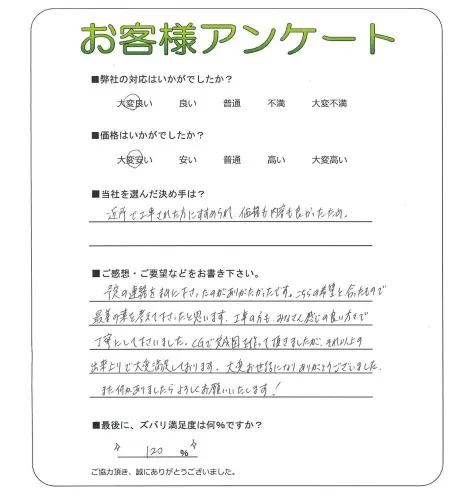 お客様アンケート
■弊社の対応はいかがでしたか？
大変良い 良い 普通 不満 大変不満
■価格はいかがでしたか？
大変安い 安い 普通 高い 大変高い
■当社を選んだ決め手は？
近所で工事された方にすすめられ、価格も内容も良かったため。
■ご感想・ご要望などをお書き下さい。
予定の連絡をまめに下さったのがありがたかったです。こちらの希望と合ったもので
最善の案を考えて下さったと思います。工事の方も、みなさん感じの良い方で
丁寧にして下さいました。CGで完成図を作って頂きましたが、それ以上の
出来上りで大変満足しております。大変お世話になりありがとうございました。
また何かありましたらよろしくお願いいたします！
■最後に、ズバリ満足度は何%ですか？
120 %
ご協力頂き、誠にありがとうございました。